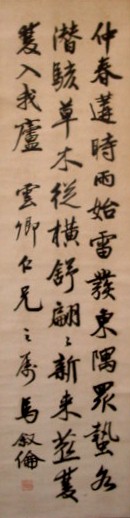 仲春遘時雨始雷發東隅眾蟄各
潛駭草木從橫舒翩〻新来燕雙
雙入我廬 雲卿仁兄之屬 馬叙倫